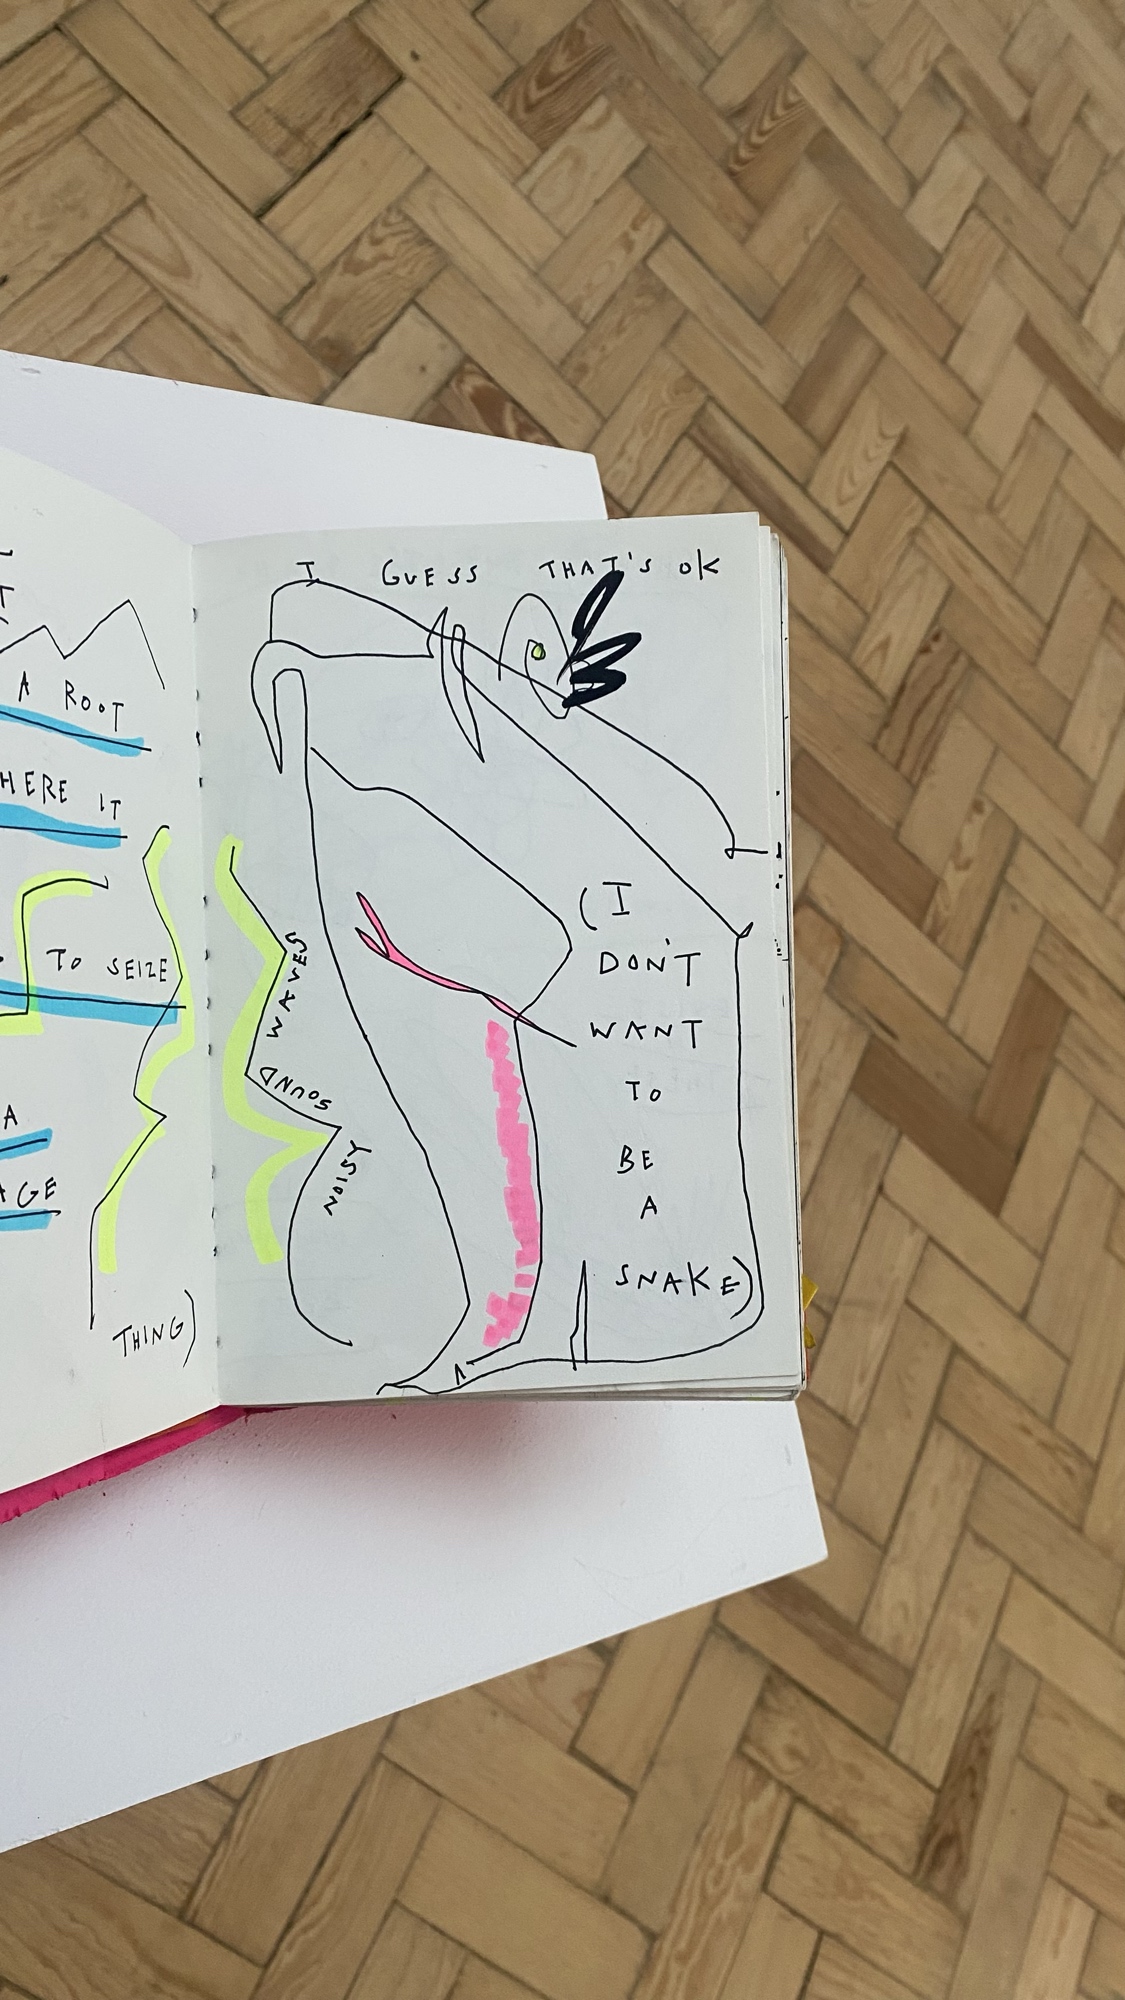 A ROOT
HERE IT
TO SEIZE
A
AGE
THING)
I GUESS THAT'S OK
NOISY SOUND WAVES
(I
DON'T
WANT
TO
BE
A
SNAKE)